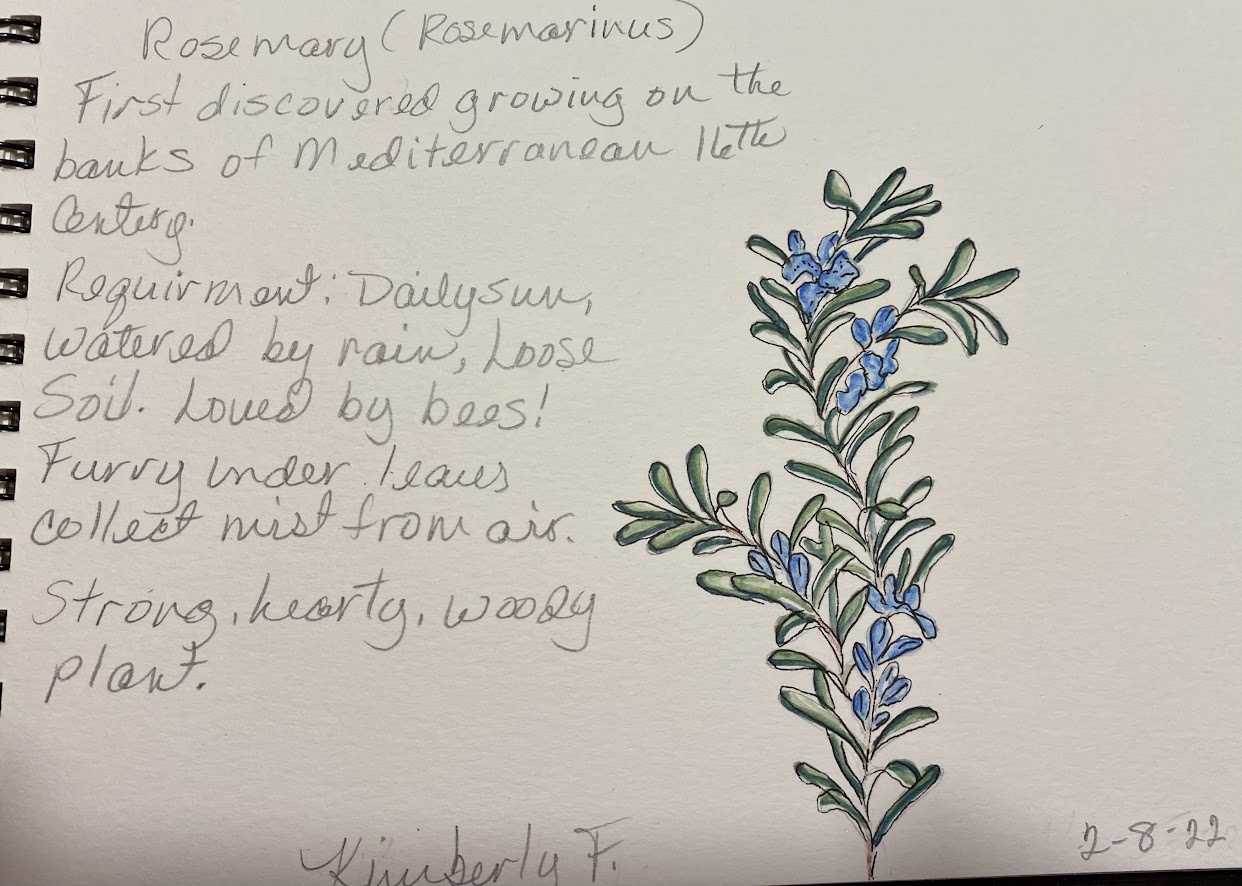 Rosemary (Rosemarinus)
First discovered growing on the
banks of Mediterranean 16th
Century.
Requirment: Daily sun,
watered by rain, Loose
Soil. Loved by bees!
Furry under leaves
collect mist from air.
Strong, hearty, woody
plant.
Kimberly F.
2-8-22